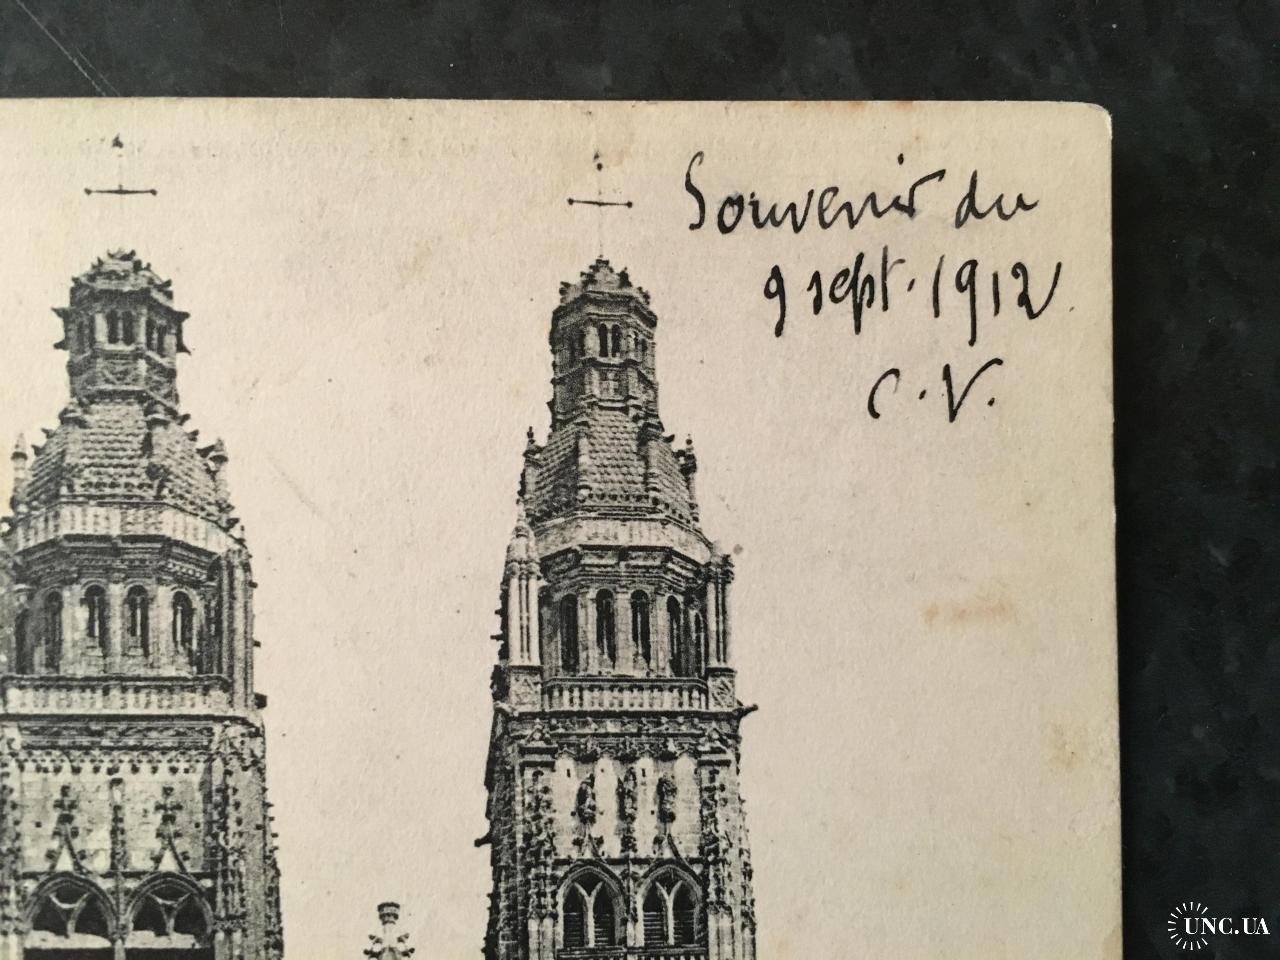 Souvenir du
9 sept. 1912
C.V.
UNC.UA